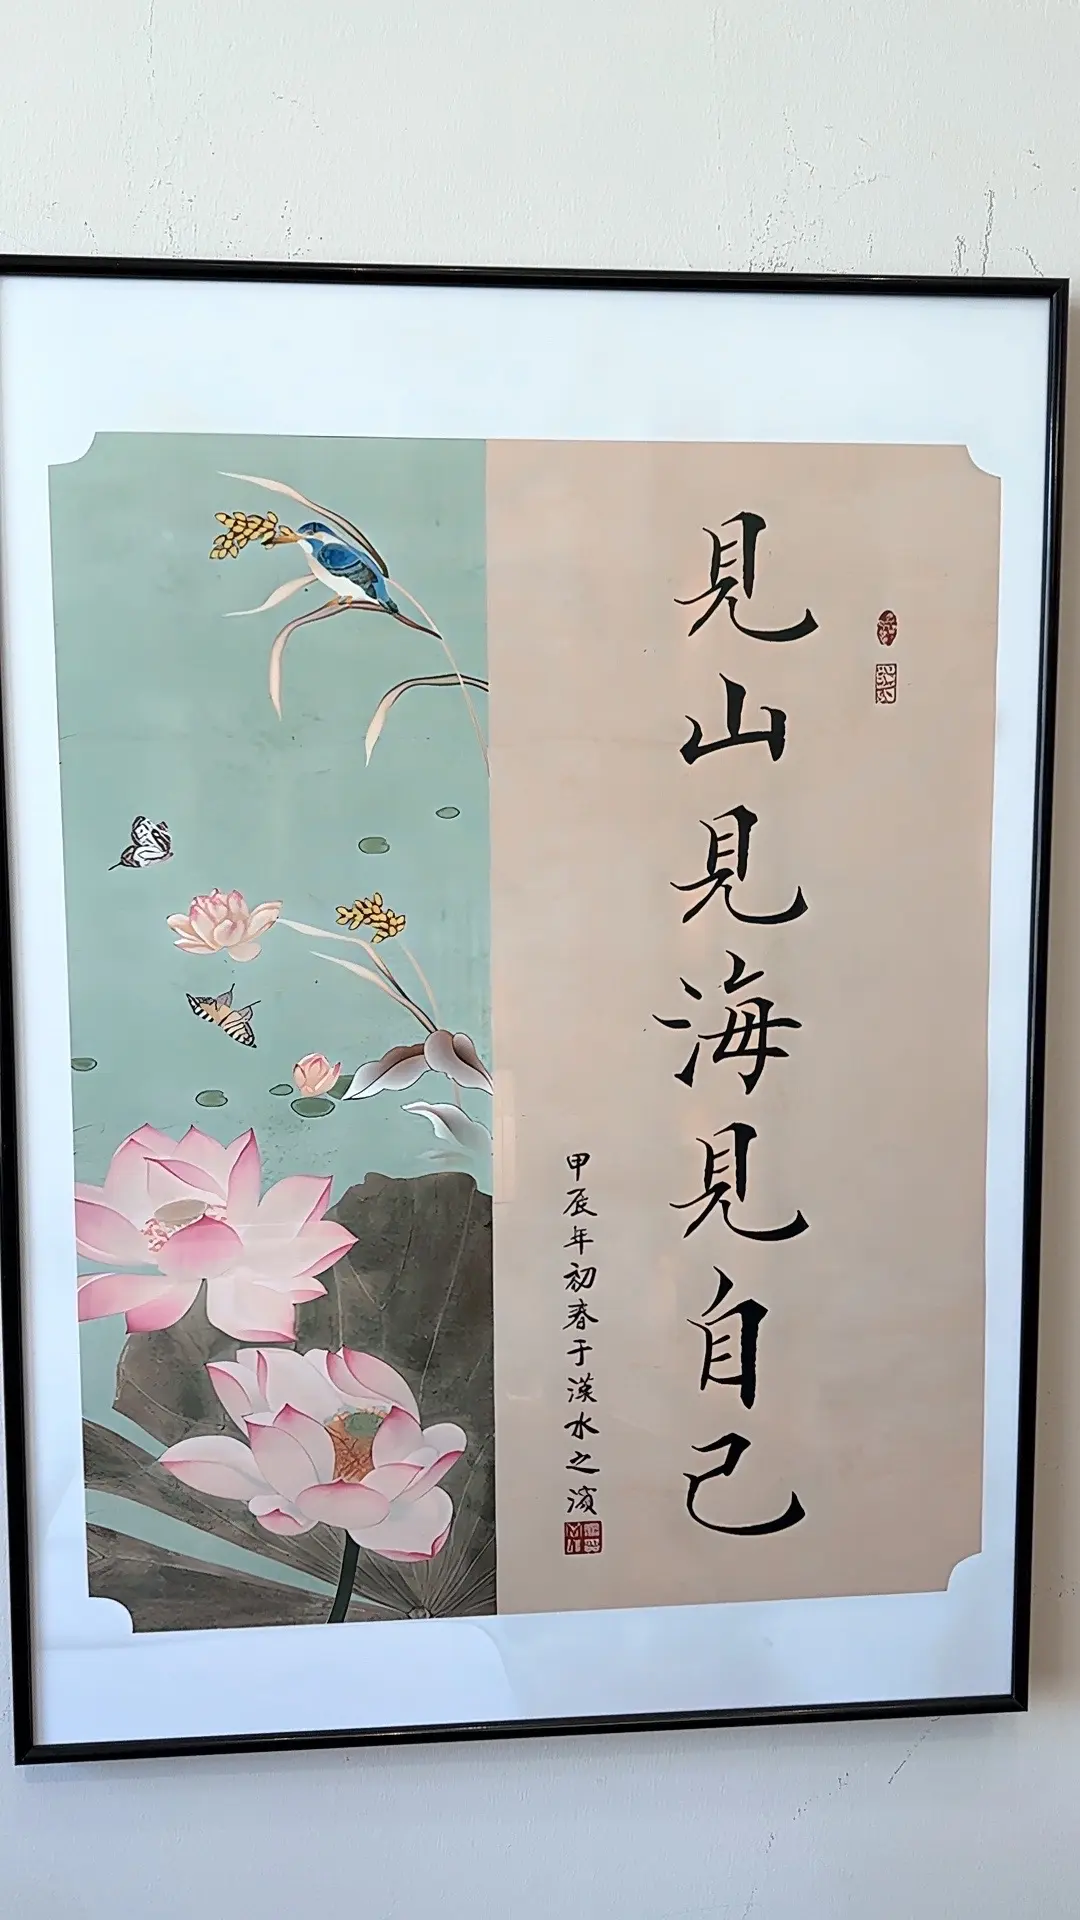 見山見海見自己
甲辰年初春于漢水之濱